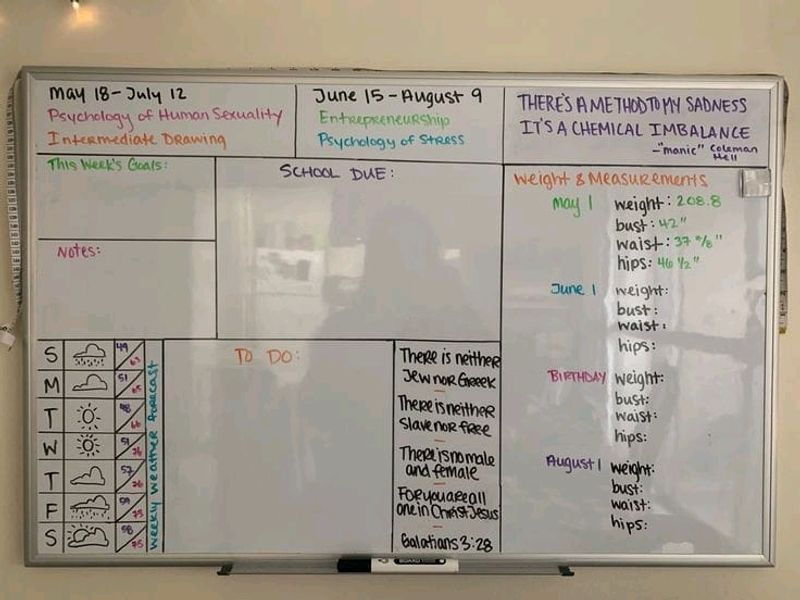 May 18 - July 12
Psychology of Human Sexuality
Intermediate Drawing
June 15 - August 9
Entrepreneurship
Psychology of Stress
THERE'S A METHOD TO MY SADNESS
IT'S A CHEMICAL IMBALANCE
- "manic" Coleman
Hell
This Week's Goals:
Notes:
SCHOOL DUE:
S
M
T
W
T
F
S
49
51
57
weekly weather forecast
TO DO:
There is neither
Jew nor Greek
There is neither
slave nor free
There is no male
and female
For you are all
one in Christ Jesus
Galatians 3:28
Weight & Measurements
May 1
weight: 208.8
bust: 42"
waist: 37
hips: 46 1/2"
June 1
weight:
bust:
waist:
hips:
BIRTHDAY
weight:
bust:
waist:
hips:
August 1
weight:
bust:
waist:
hips:
BOARD